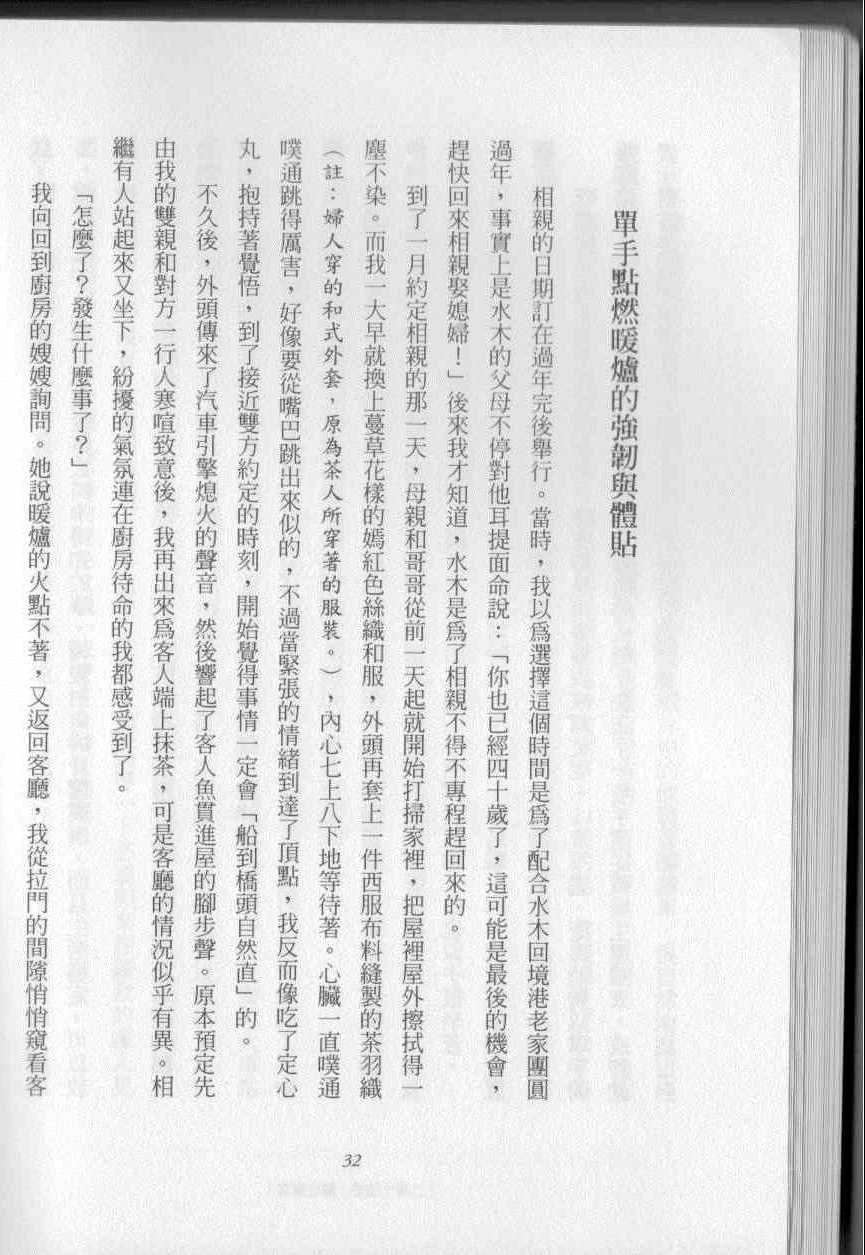 單手點燃暖爐的強韌與體貼
相親的日期訂在過年完後舉行。當時，我以為選擇這個時間是為了配合水木回境港老家團圓
過年，事實上是水木的父母不停對他耳提面命說：「你也已經四十歲了，這可能是最後的機會，
趕快回來相親娶媳婦！」後來我才知道，水木是爲了相親不得不專程趕回來的。
到了一月約定相親的那一天，母親和哥哥從前一天起就開始打掃家裡，把屋裡屋外擦拭得一
塵不染。而我一大早就換上蔓草花樣的嫣紅色絲織和服，外頭再套上一件西服布料縫製的茶羽織
（註：婦人穿的和式外套，原為茶人所穿著的服裝。），內心七上八下地等待著。心臟一直噗通
噗通跳得厲害，好像要從嘴巴跳出來似的，不過當緊張的情緒到達了頂點，我反而像吃了定心
丸，抱持著覺悟，到了接近雙方約定的時刻，開始覺得事情一定會「船到橋頭自然直」的。
不久後，外頭傳來了汽車引擎熄火的聲音，然後響起了客人魚貫進屋的腳步聲。原本預定先
由我的雙親和對方一行人寒喧致意後，我再出來爲客人端上抹茶，可是客廳的情況似乎有異。相
繼有人站起來又坐下，紛擾的氣氛連在廚房待命的我都感受到了。
「怎麼了？發生什麼事了？」
我向回到廚房的嫂嫂詢問。她說暖爐的火點不著，又返回客廳，我從拉門的間隙悄悄窺看客
32